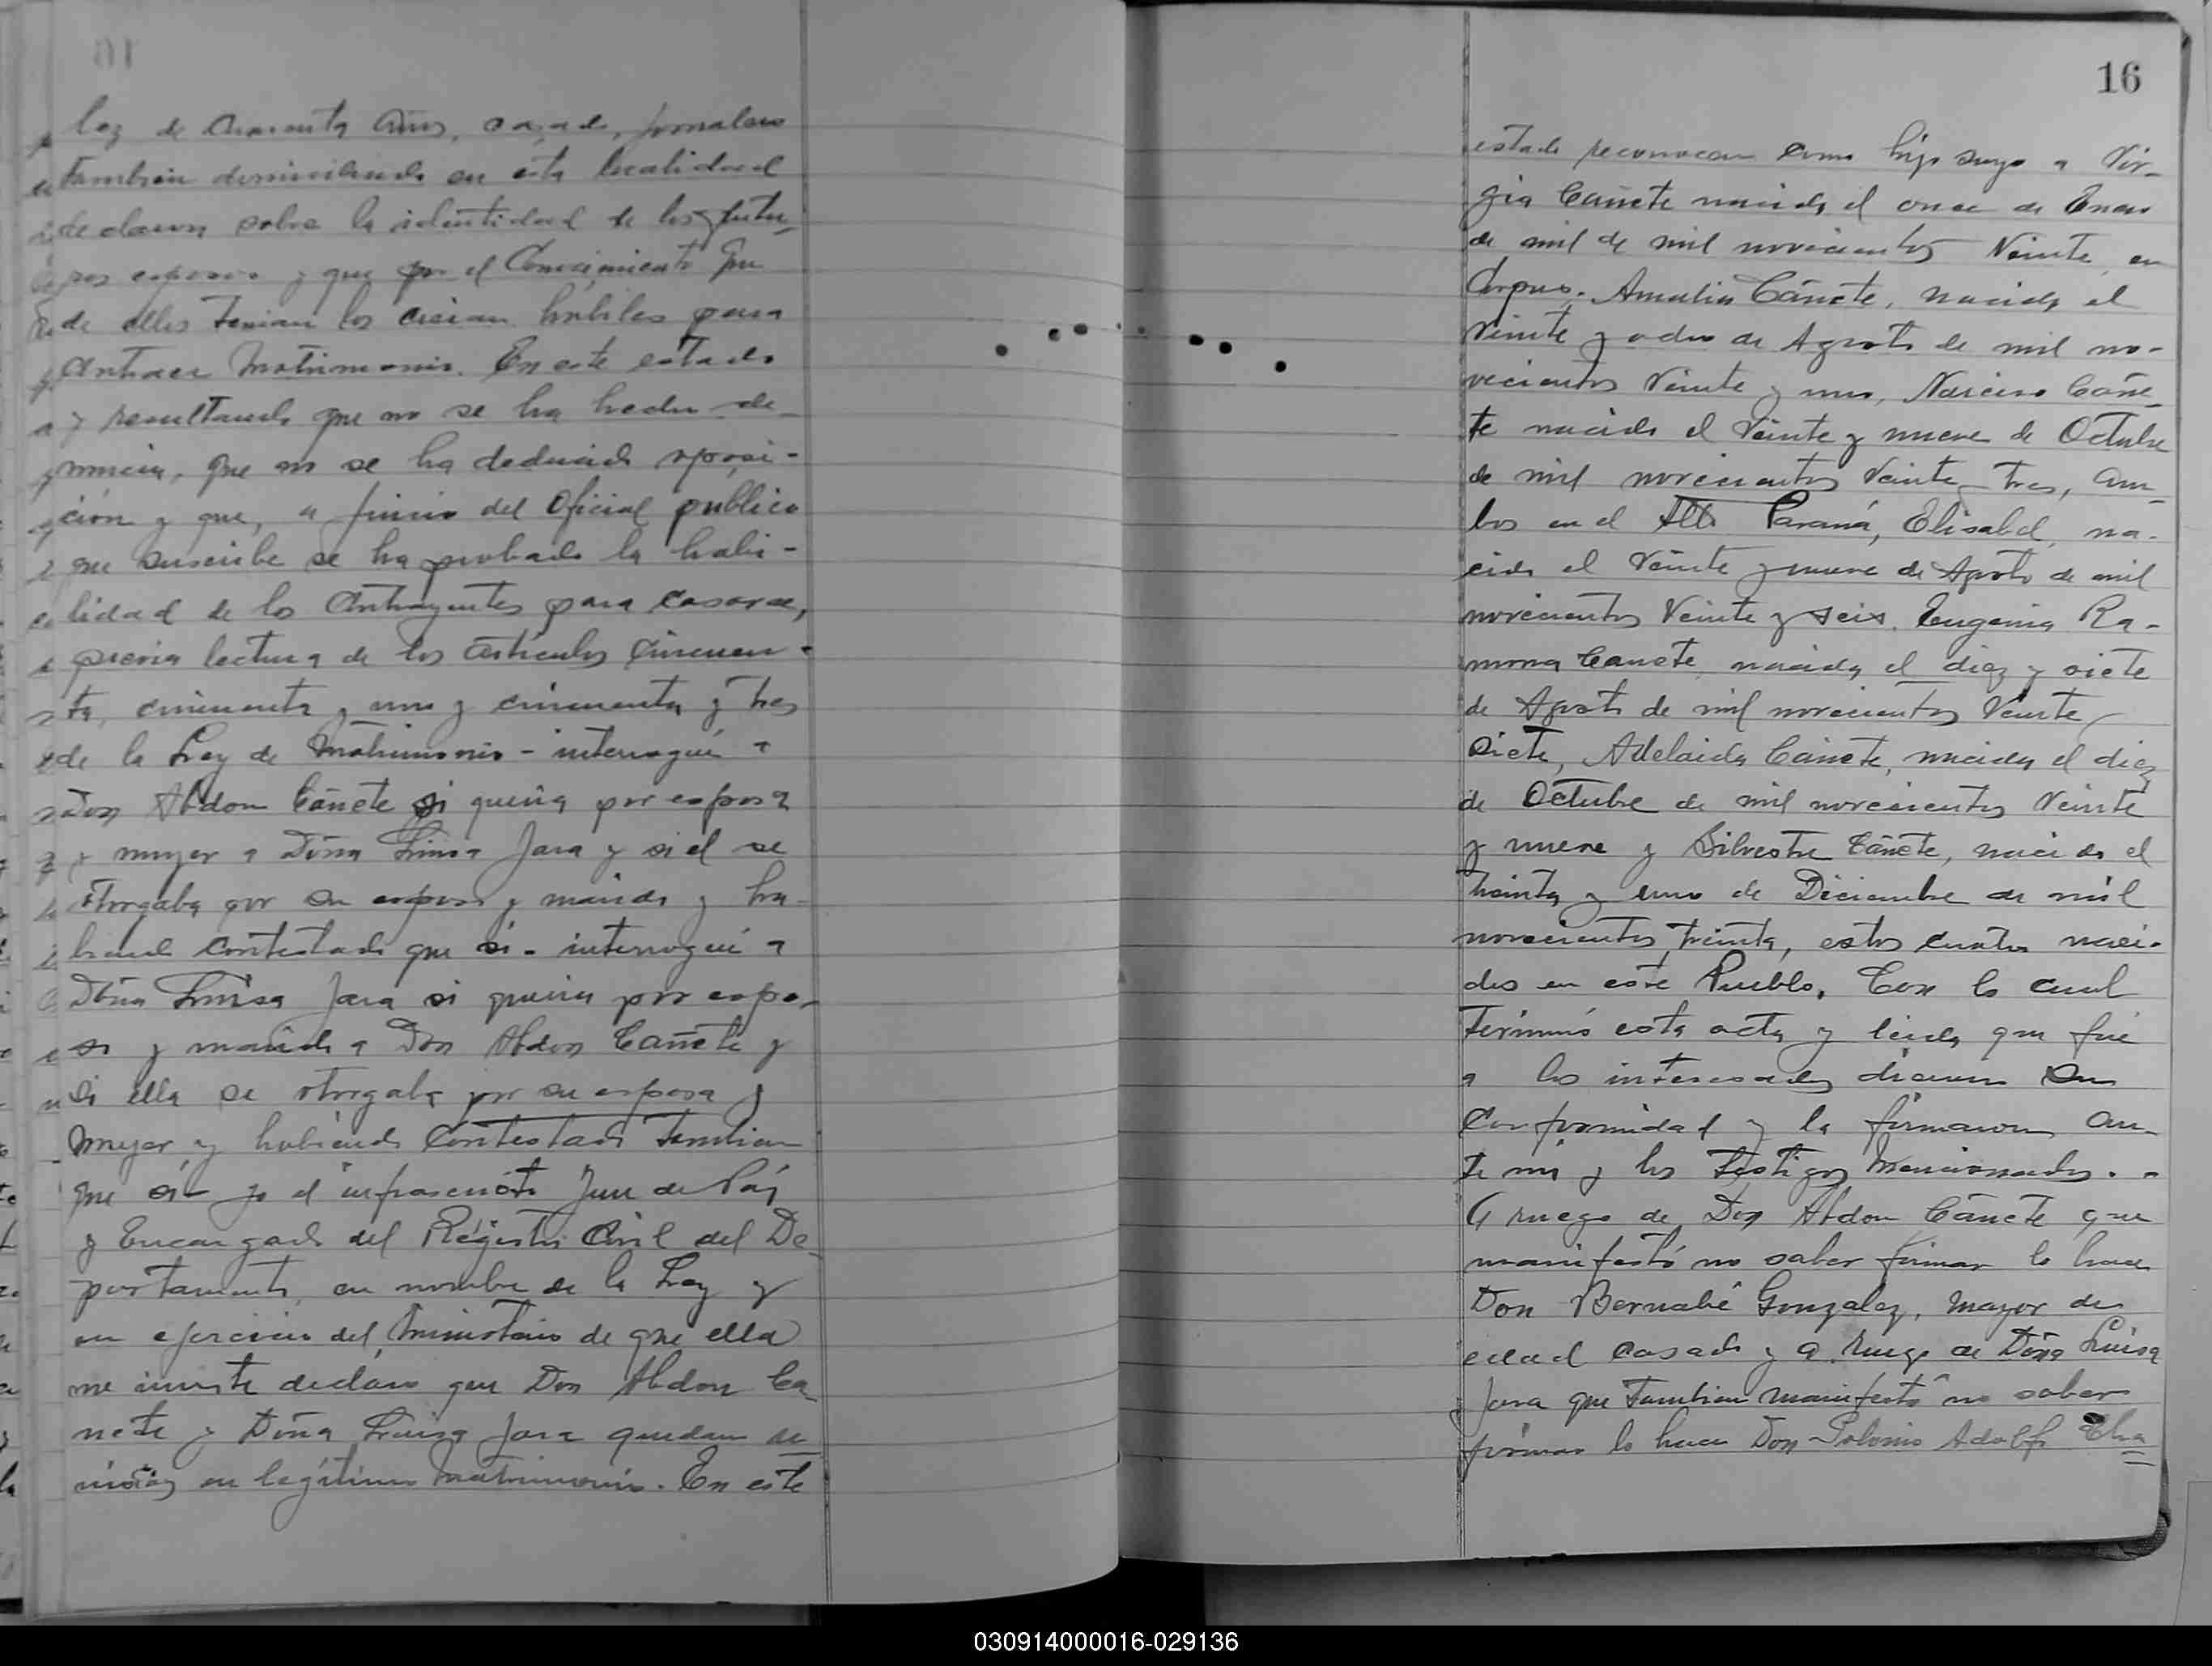 lez de Cuarenta años, casado, jornalero
tambien domiciliado en esta localidad
declaran sobre la identidad de los futu-
ros esposos y que por el Conocimiento que
de ellos tenian los creian hábiles para
Contraer Matrimonio. En este estado
y resultando que no se ha hecho de-
nuncia, que no se ha deducido oposi-
ción y que, a juicio del Oficial público
que suscribe se ha probado la habi-
lidad de los Contrayentes para casarse,
previa lectura de los artículos Cincuen-
ta, cincuenta y uno y cincuenta y tres
de la Ley de Matrimonio - interrogué a
Don Abdon Cañete si queria por esposa
y muger a Doña Luisa Jara y si el se
otorgaba por su esposo y marido y ha-
biendo contestado que si - interrogué a
Doña Luisa Jara si queria por espo-
so y marido a Don Abdon Cañete y
si ella se otorgaba por su esposa y
muger y habiendo Contestado tambien
que si - yo el infrascrito Juez de Páz
y Encargado del Registro Civil del De-
partamento, en nombre de la Ley y
en ejercicio del Ministerio de que ella
me inviste declaro que Don Abdon Ca-
ñete y Doña Luisa Jara quedan u-
nidos en legítimo Matrimonio. En este
16
estado reconocen como hijo suyo a Vir-
gia Cañete nacida el once de Enero
de mil de mil novecientos Veinte, en
Corpus. Amalia Cañete, nacida el
veinte y ocho de Agosto de mil no-
vecientos Veinte y uno, Narciso Cañe-
te nacido el Veinte y nueve de Octubre
de mil novecientos Veinte tres, am-
bos en el Alto Paraná, Elisabel, na-
cida el Veinte y nueve de Agosto de mil
novecientos Veinte y seis. Eugenia Ra-
mona Cañete, nacida el diez y siete
de Agosto de mil novecientos Veinte
siete, Adelaida Cañete, nacida el diez
de Octubre de mil novecientos Veinte
y nueve y Silvestre Cañete, nacido el
treinta y uno de Diciembre de mil
novecientos treinta, estos cuatro naci-
dos en este Pueblo. Con lo cual
terminó esta acta y leida que fué
a los interesados dieron su
Conformidad y la firmaron an-
te mi y los testigos mencionados. -
A ruego de Don Abdon Cañete que
manifestó no saber firmar lo hace
Don Bernabé Gonzalez, mayor de
edad casado y a ruego de Doña Luisa
Jara que tambien manifestó no saber
firmar lo hace Don Polonio Adolfo
030914000016-029136